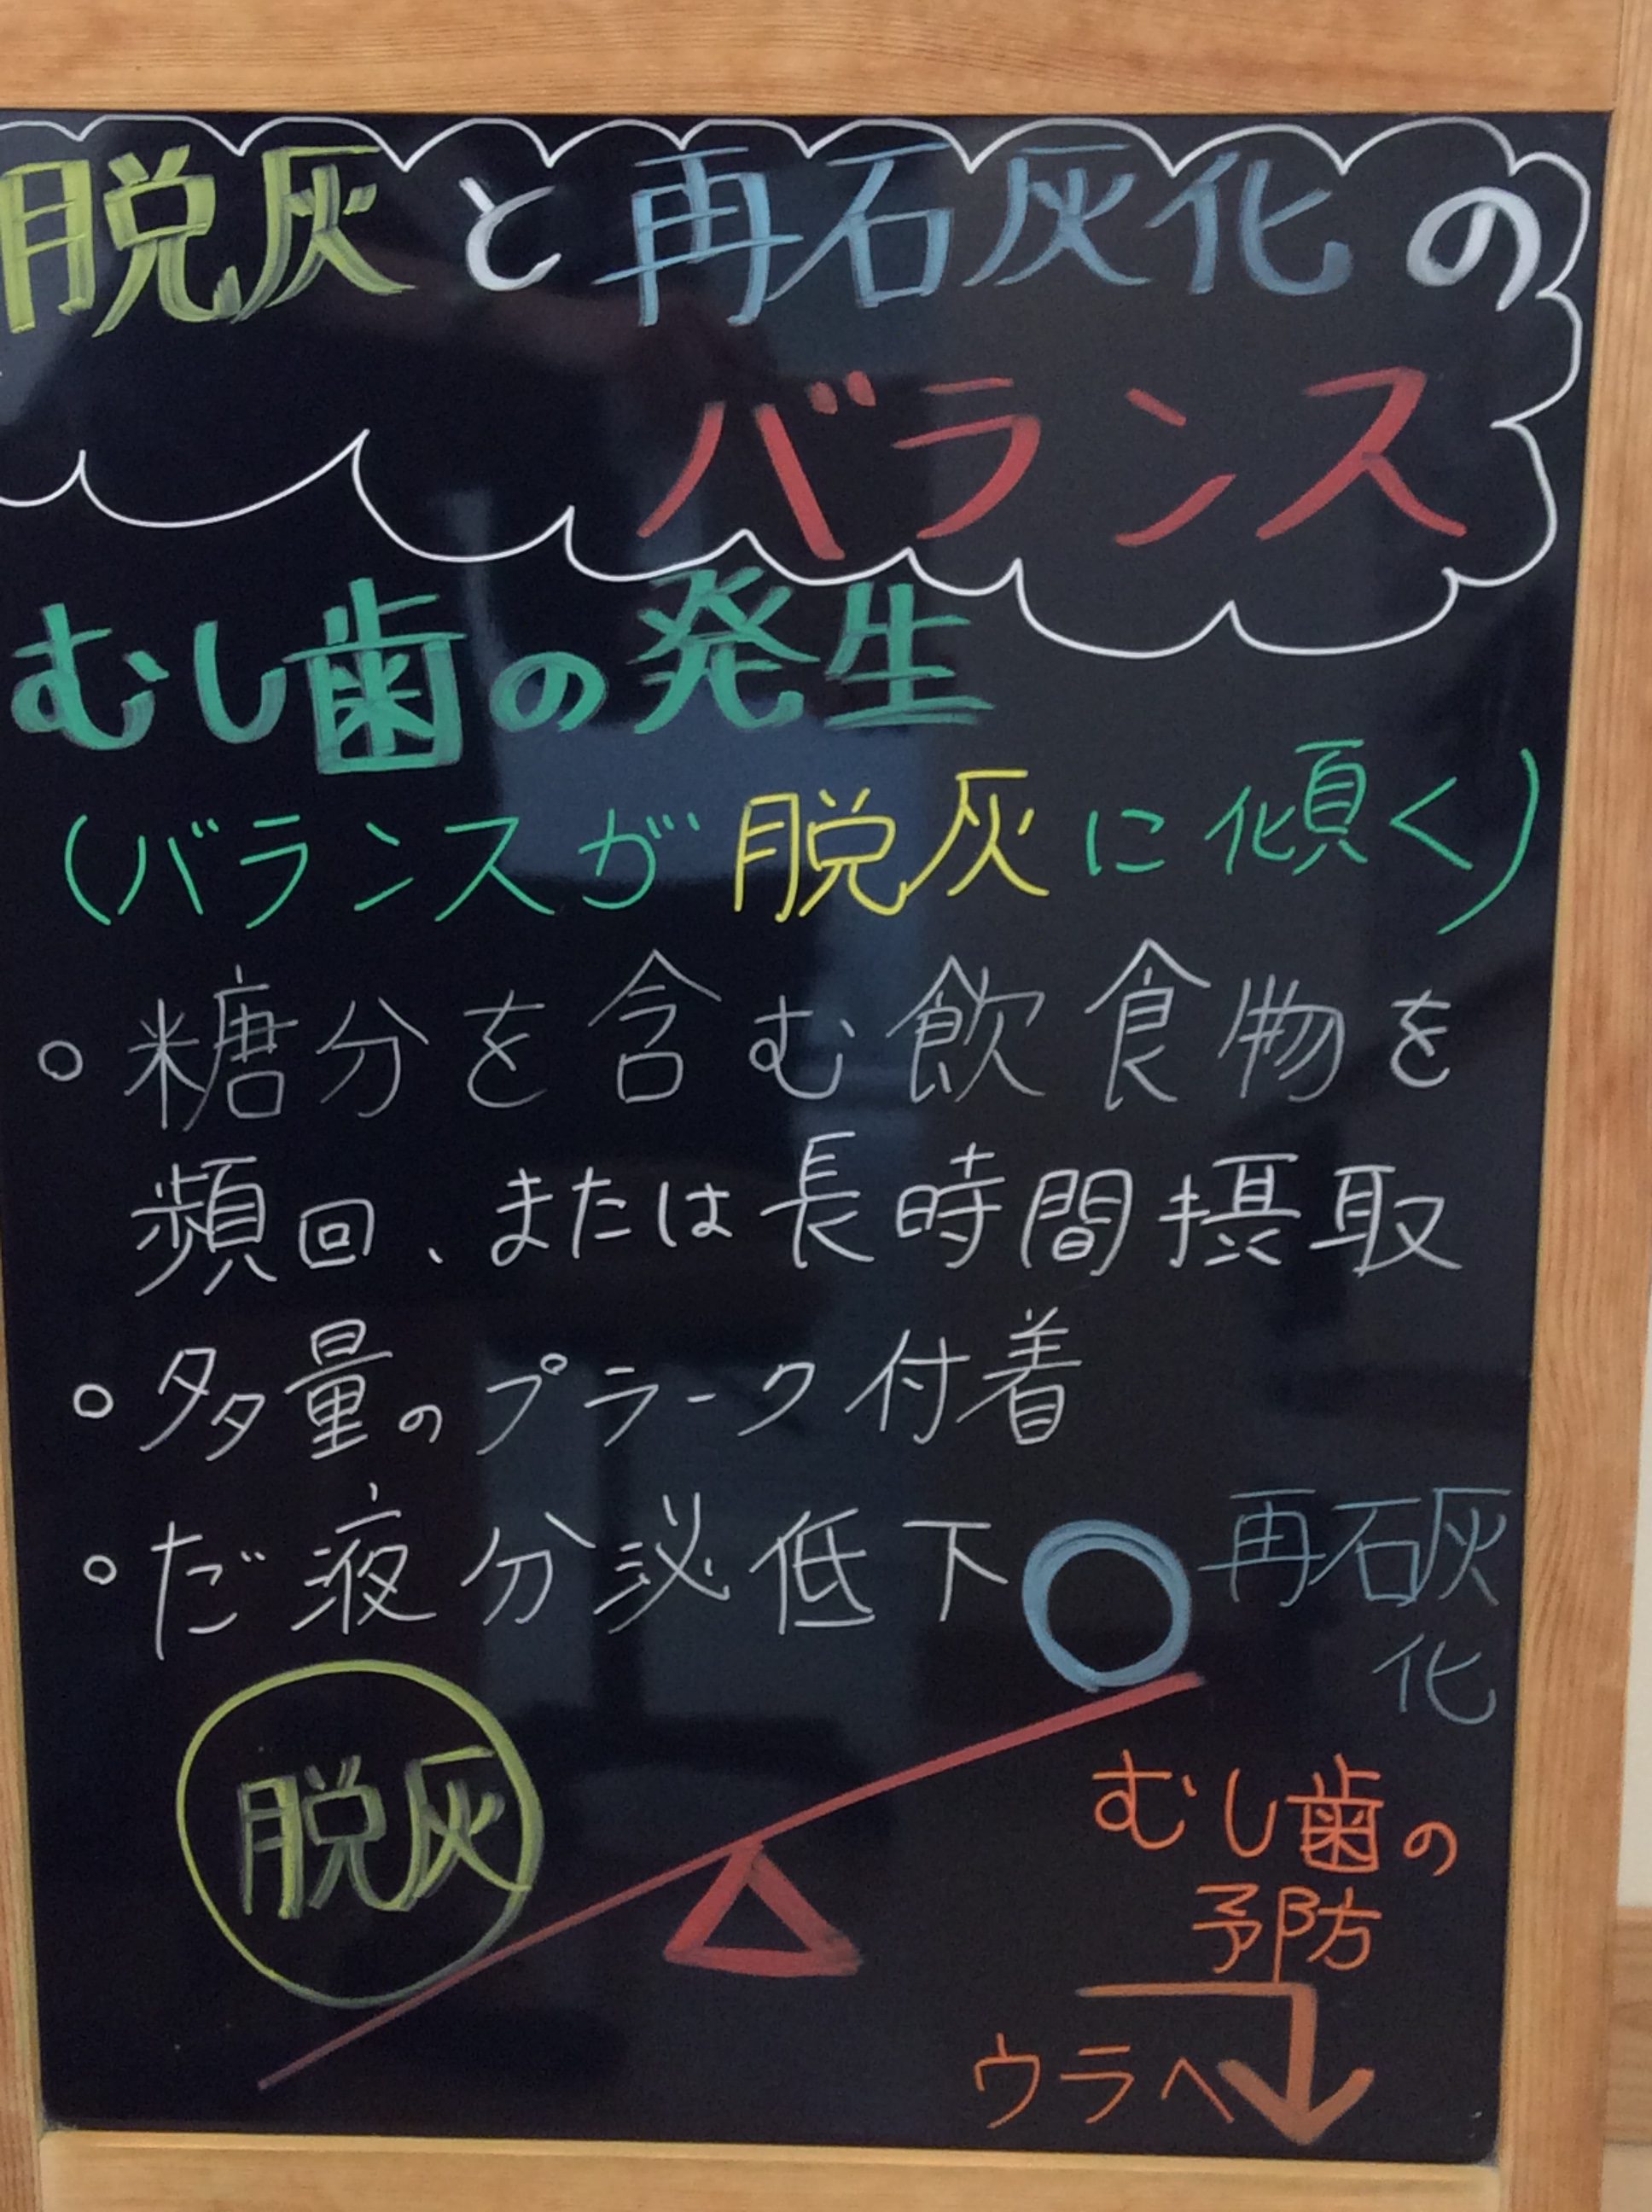 脱灰と再石灰化の
バランス
むし歯の発生
(バランスが脱灰に傾く)
○糖分を含む飲食物を
頻回、または長時間摂取
○多量のプラーク付着
○だ液分泌低下
再石灰
化
脱灰
むし歯の
予防
ウラへ